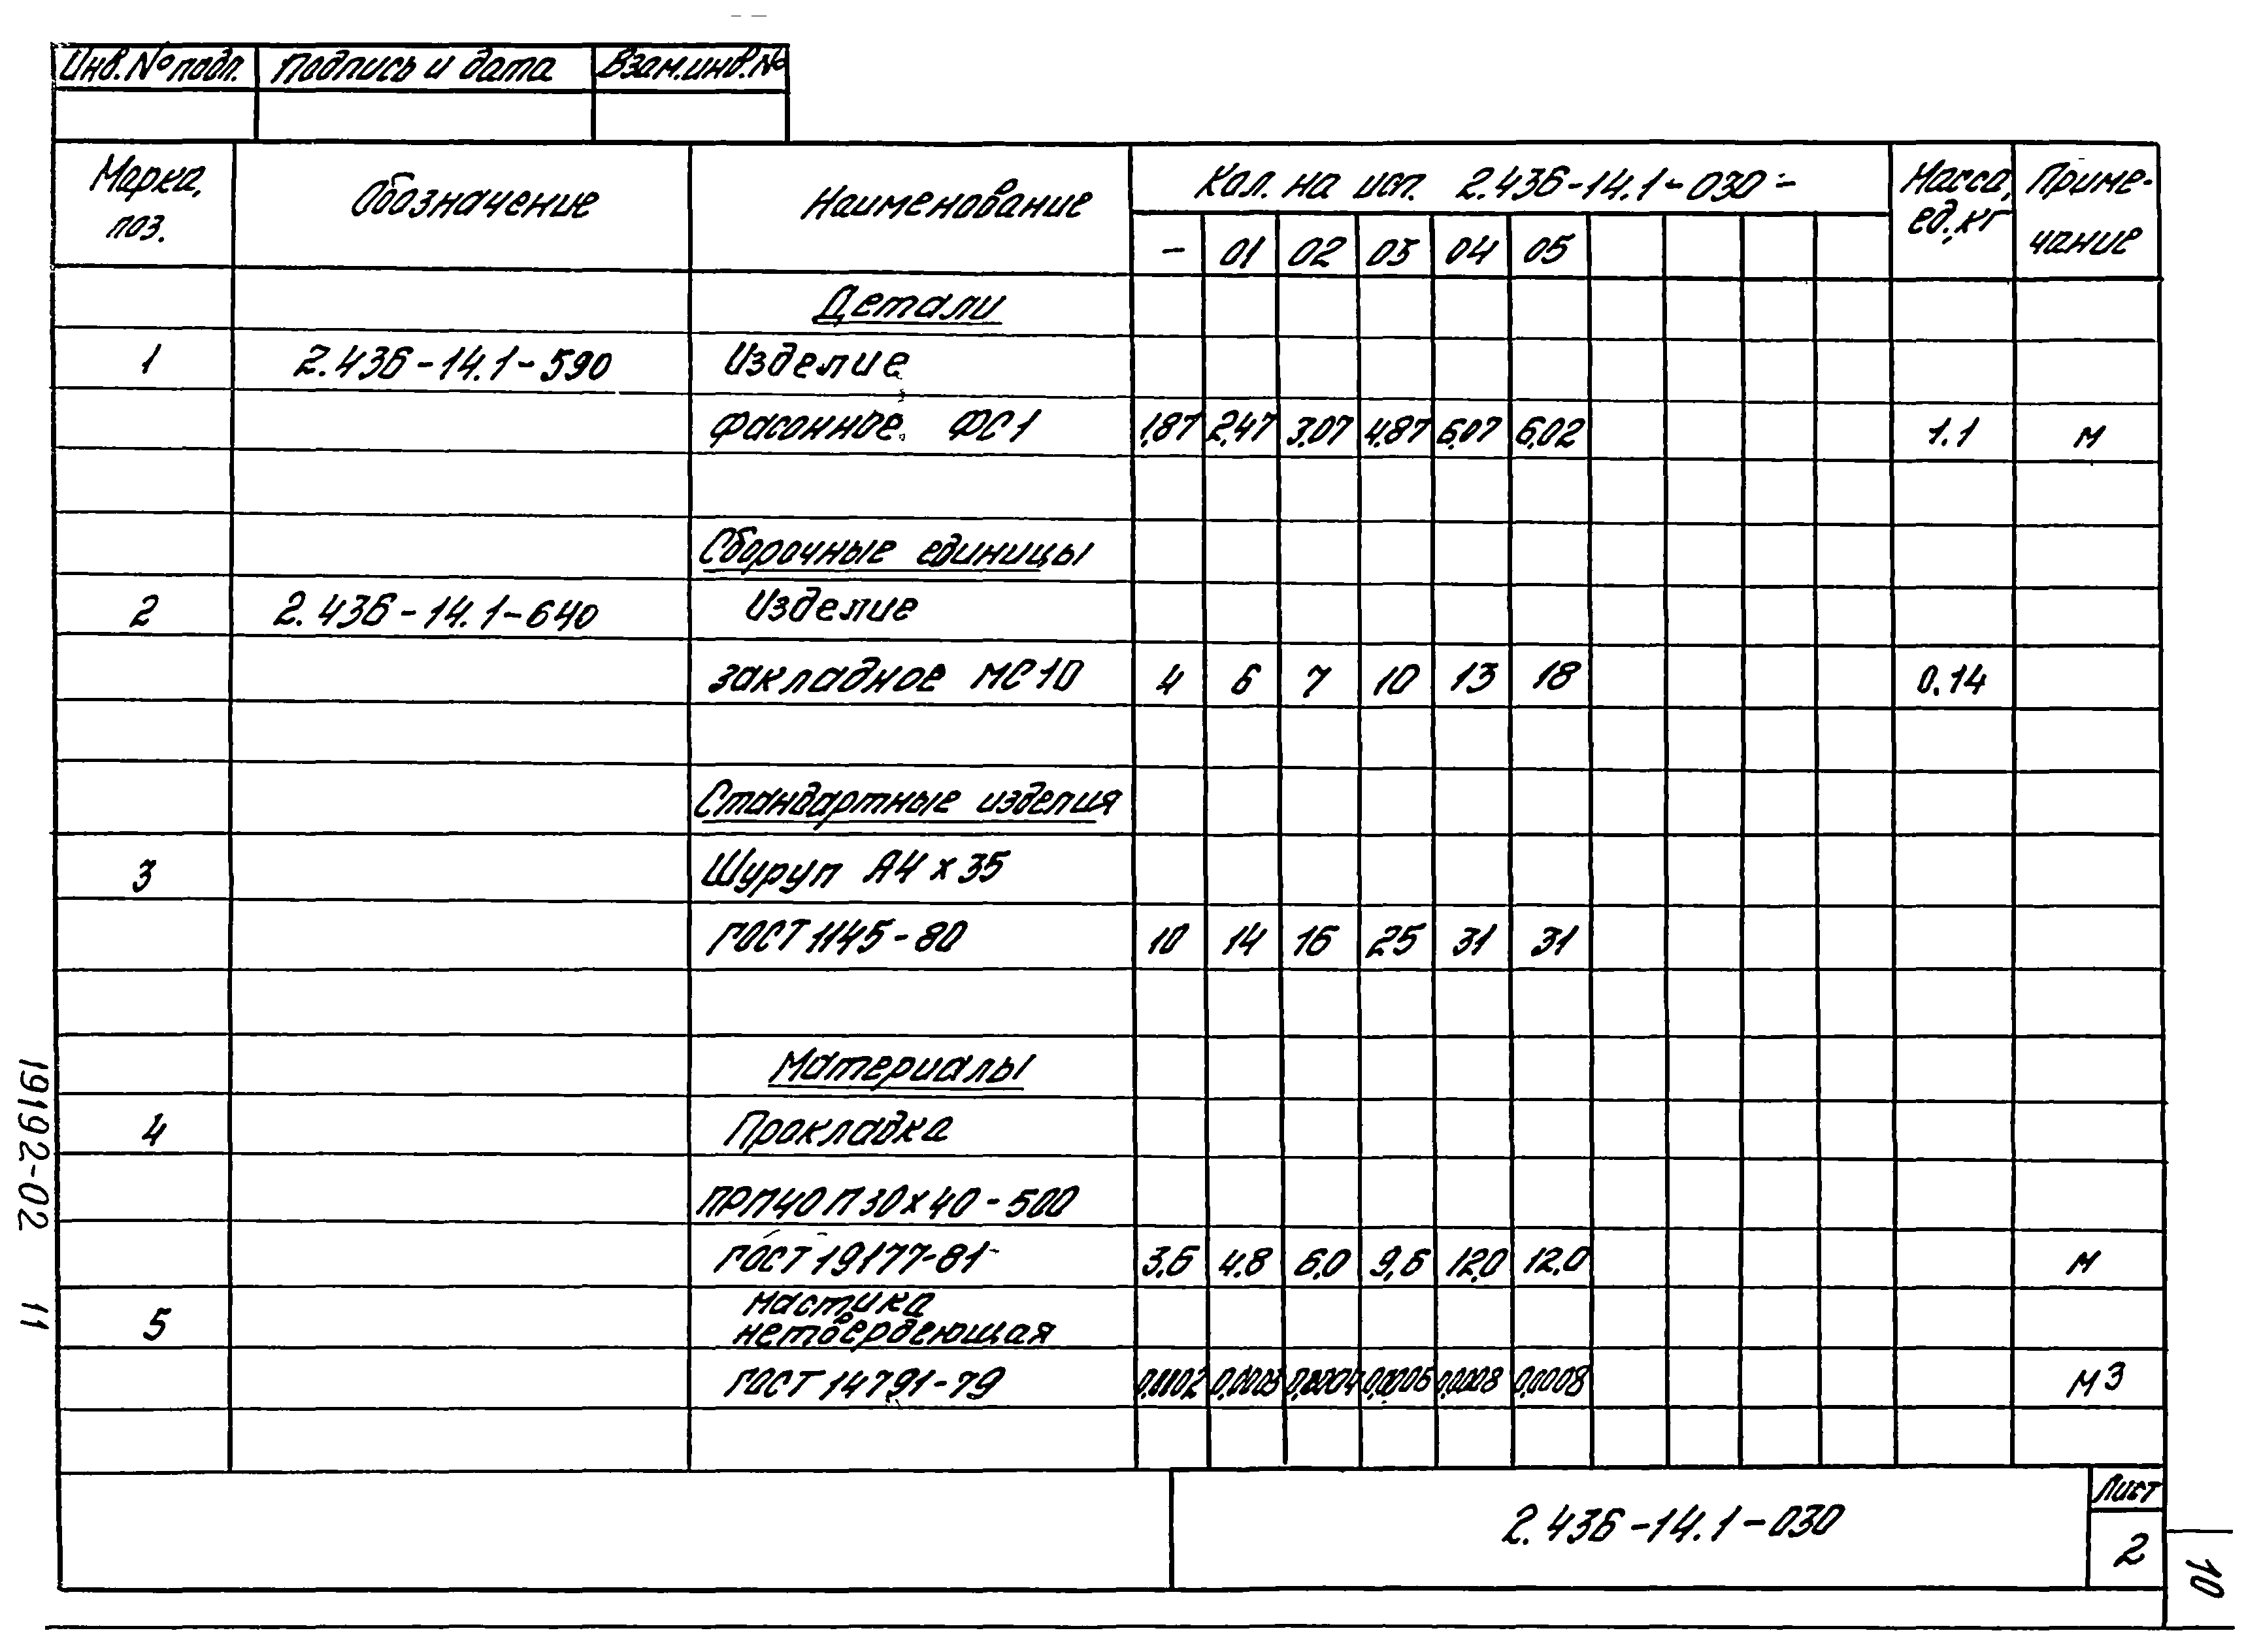 Инв.№ подл. Подпись и дата Взам.инв.№
Марка, поз. Обозначение Наименование Кол. на исп. 2.436-14.1-030- Масса, ед.,кг Приме-чание
- 01 02 03 04 05
Детали
1 2.436-14.1-590 Изделие
фасонное ФС1 1,87 2,47 3,07 4,87 6,07 6,02 1.1 м
Сборочные единицы
2 2.436-14.1-640 Изделие
закладное МС10 4 6 7 10 13 18 0.14
Стандартные изделия
3 Шуруп А4х35
ГОСТ 1145-80 10 14 16 25 31 31
Материалы
4 Прокладка
ПРП40П30х40-500
ГОСТ 19177-81 3,6 4.8 6,0 9,6 12,0 12,0 м
5 мастика
нетвердеющая
ГОСТ 14791-79 0,0002 0,0003 0,0004 0,0006 0,0008 0,0008 м3
2.436-14.1-030
Лист
2
19192-02 11
10